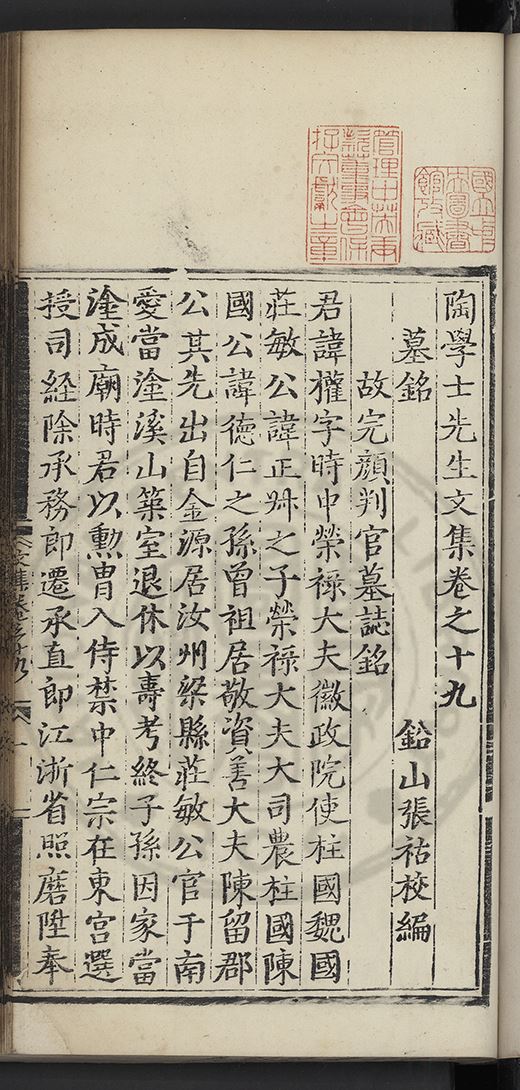 陶學士先生文集卷之十九
墓銘　鉛山張祐校編
故完顏判官墓誌銘
君諱權字時中榮祿大夫徽政院使柱國魏國
莊敏公諱正叔之子榮祿大夫大司農柱國陳
國公諱德仁之孫曾祖居敬資善大夫陳留郡
公其先出自金源居汝州梁縣莊敏公官于南
愛當塗溪山築室退休以壽考終子孫因家當
塗成廟時君以勳胄入侍禁中仁宗在東宮選
授司經除承務郎遷承直郎江浙省照磨陞奉
文集卷之十九
一
國立中央圖書館收藏
管理中英庚款董事會保存文獻之章